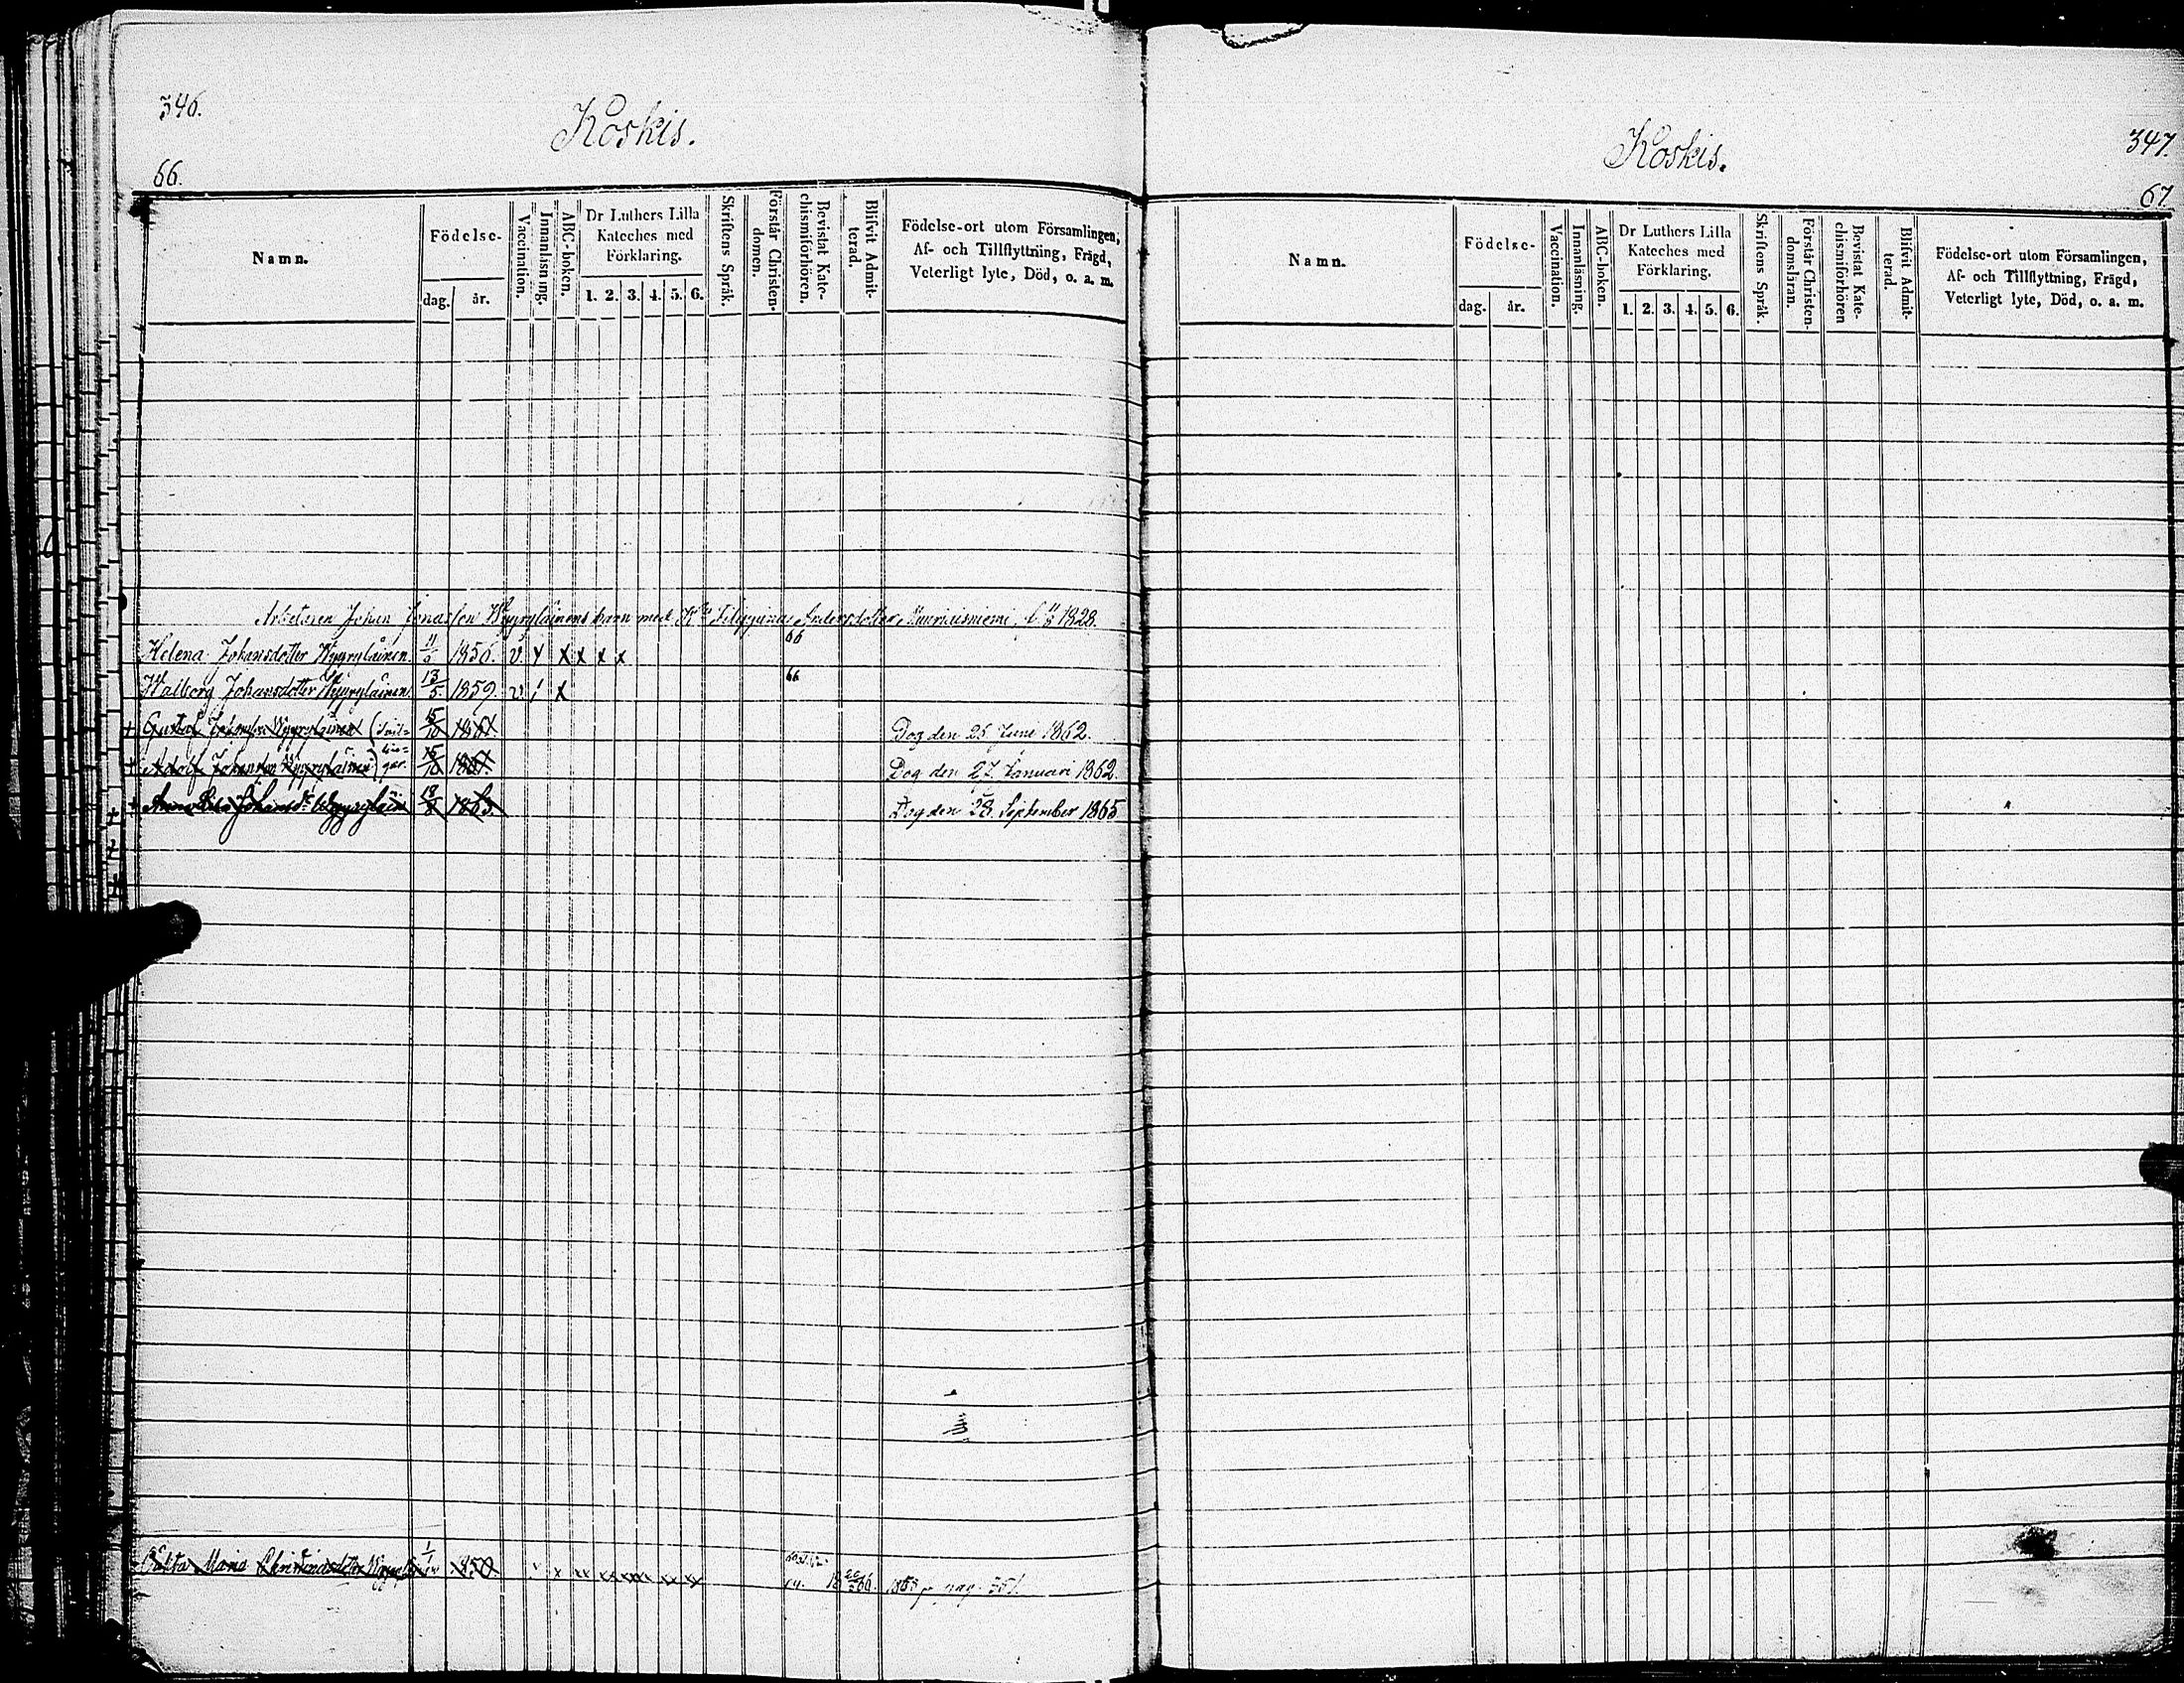 346.
Koskis.
66.
Namn.
Födelse-
dag.
år.
Vaccination.
Innanläsning.
ABC-boken.
Dr Luthers Lilla
Kateches med
Förklaring.
1. 2. 3. 4. 5. 6.
Skriftens Språk.
Förstår Christen-
domen.
Bevistat Kate-
chismiförhören.
Blifvit Admit-
terad.
Födelse-ort utom Församlingen,
Af- och Tillflyttning, Frägd,
Veterligt lyte, Död, o. a. m.
Arbetaren Johan Jonasson Wyyryläinens barn med Filippina Andersdotter 1828.
Helena Johansdotter Wyyryläinen. 11/9 1856. v Y X X X X 66
Walborg Johansdotter Wyyryläinen. 13/5 1859. v i X 66
+ Gustaf Johansson Wyyryläinen 15/10 1861. Dog den 25 Juni 1862.
+ Adolf Johansson Wyyryläinen 15/10 1861. Dog den 27 Januari 1862.
+ Anna Johansd:r Wyyryläin 1865. Dog den 28 September 1865
Maria Christinasdotter 1/1 1850 x 66. pag. 351.
347.
Koskis.
67
Namn.
Födelse-
dag.
år.
Vaccination.
Innanläsning.
ABC-boken.
Dr Luthers Lilla
Kateches med
Förklaring.
1. 2. 3. 4. 5. 6.
Skriftens Språk.
Förstår Christen-
domsläran.
Bevistat Kate-
chismiförhören
Blifvit Admit-
terad.
Födelse-ort utom Församlingen,
Af- och Tillflyttning, Frägd,
Veterligt lyte, Död, o. a. m.